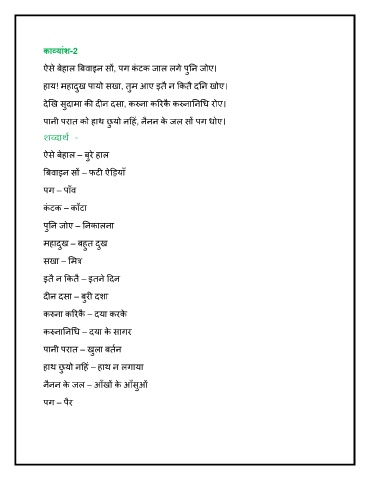 काव्यांश-2
ऐसे बेहाल बिवाइन सों, पग कंटक जाल लगे पुनि जोए।
हाय! महादुख पायो सखा, तुम आए इतै न कितै दिन खोए।
देखि सुदामा की दीन दसा, करुना करिकै करुनानिधि रोए।
पानी परात को हाथ छुयो नहिं, नैनन के जल सों पग धोए।
शब्दार्थ -
ऐसे बेहाल – बुरे हाल
बिवाइन सों – फटी ऐड़ियाँ
पग – पाँव
कंटक – काँटा
पुनि जोए – निकालना
महादुख – बहुत दुख
सखा – मित्र
इतै न कितै – इतने दिन
दीन दसा – बुरी दशा
करुना करिकै – दया करके
करुनानिधि – दया के सागर
पानी परात – खुला बर्तन
हाथ छुयो नहिं – हाथ न लगाया
नैनन के जल – आँखों के आँसुओं
पग – पैर